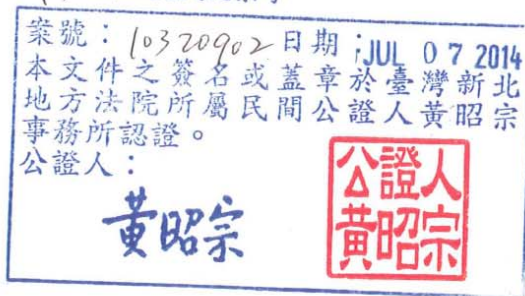 案號：10320902日期；JUL 07 2014
本文件之簽名或蓋章於臺灣新北
地方法院所屬民間公證人黃昭宗
事務所認證。
公證人：
黃昭宗
公證人
黃昭宗